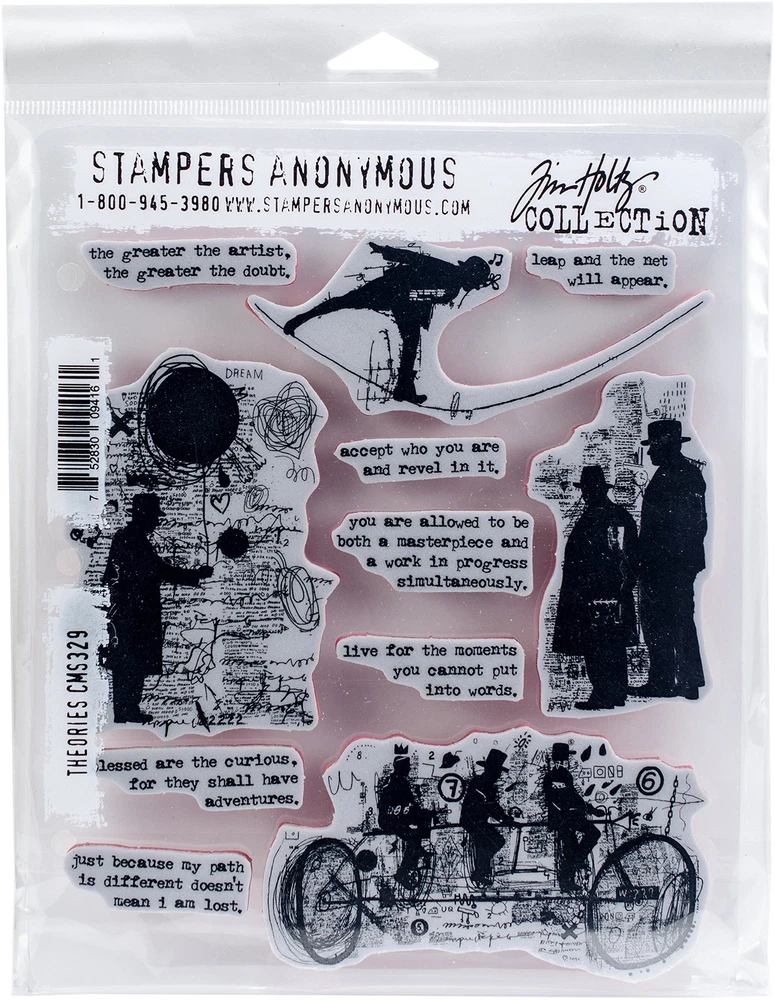 STAMPERS ANONYMOUS
1-800-945-3980 WWW.STAMPERSANONYMOUS.COM
Tim Holtz®
COLLECTION
the greater the artist,
the greater the doubt.
leap and the net
will appear.
7 52830 09416 1
DREAM
accept who you are
and revel in it.
you are allowed to be
both a masterpiece and
a work in progress
simultaneously.
live for the moments
you cannot put
into words.
THEORIES CMS329
lessed are the curious,
for they shall have
adventures.
just because my path
is different doesn't
mean i am lost.
8.
2
7
6
8